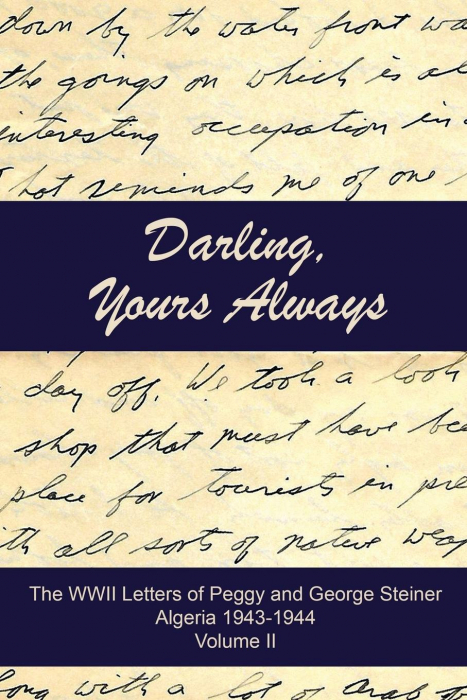 down by the water front wa
the goings on which is al
interesting occupation in
hot reminds me of one
Darling,
Yours Always
day off. We took a look
shop that must have bee
place for tourists in pre
ith all sorts of native weap
The WWII Letters of Peggy and George Steiner
Algeria 1943-1944
Volume II
long with a lot of arab